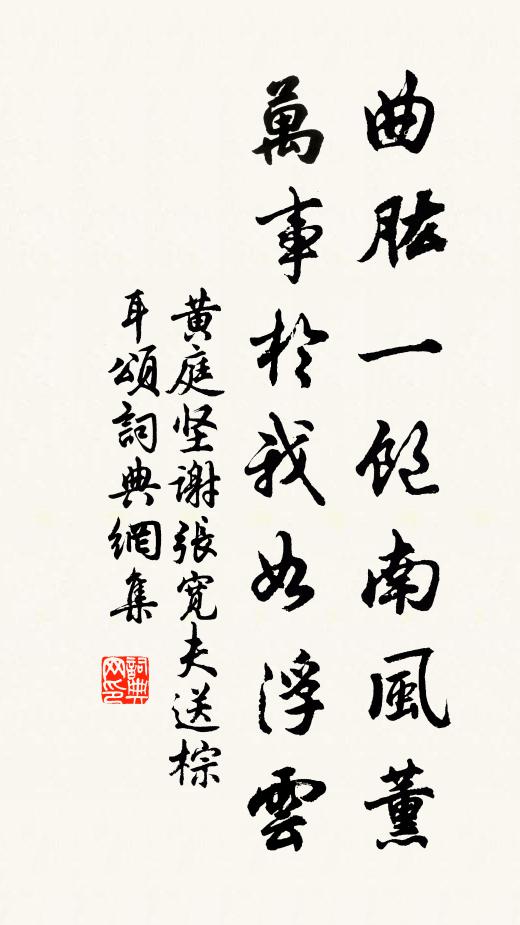 曲肱一飽南風薰
萬事於我如浮雲
黃庭坚謝張寬夫送棕
耳頌詞典網集
詞典
网印